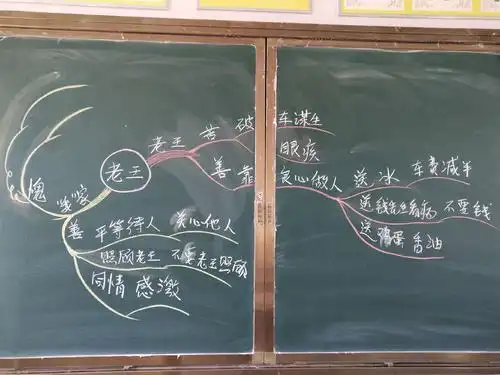 老王
老王
苦 破车谋生
眼疾
善 靠良心做人
送冰 车费减半
送钱先生看病 不要钱
送鸡蛋 香油
愧
善 平等待人 关心他人
照顾老王 不要老王照顾
同情 感激